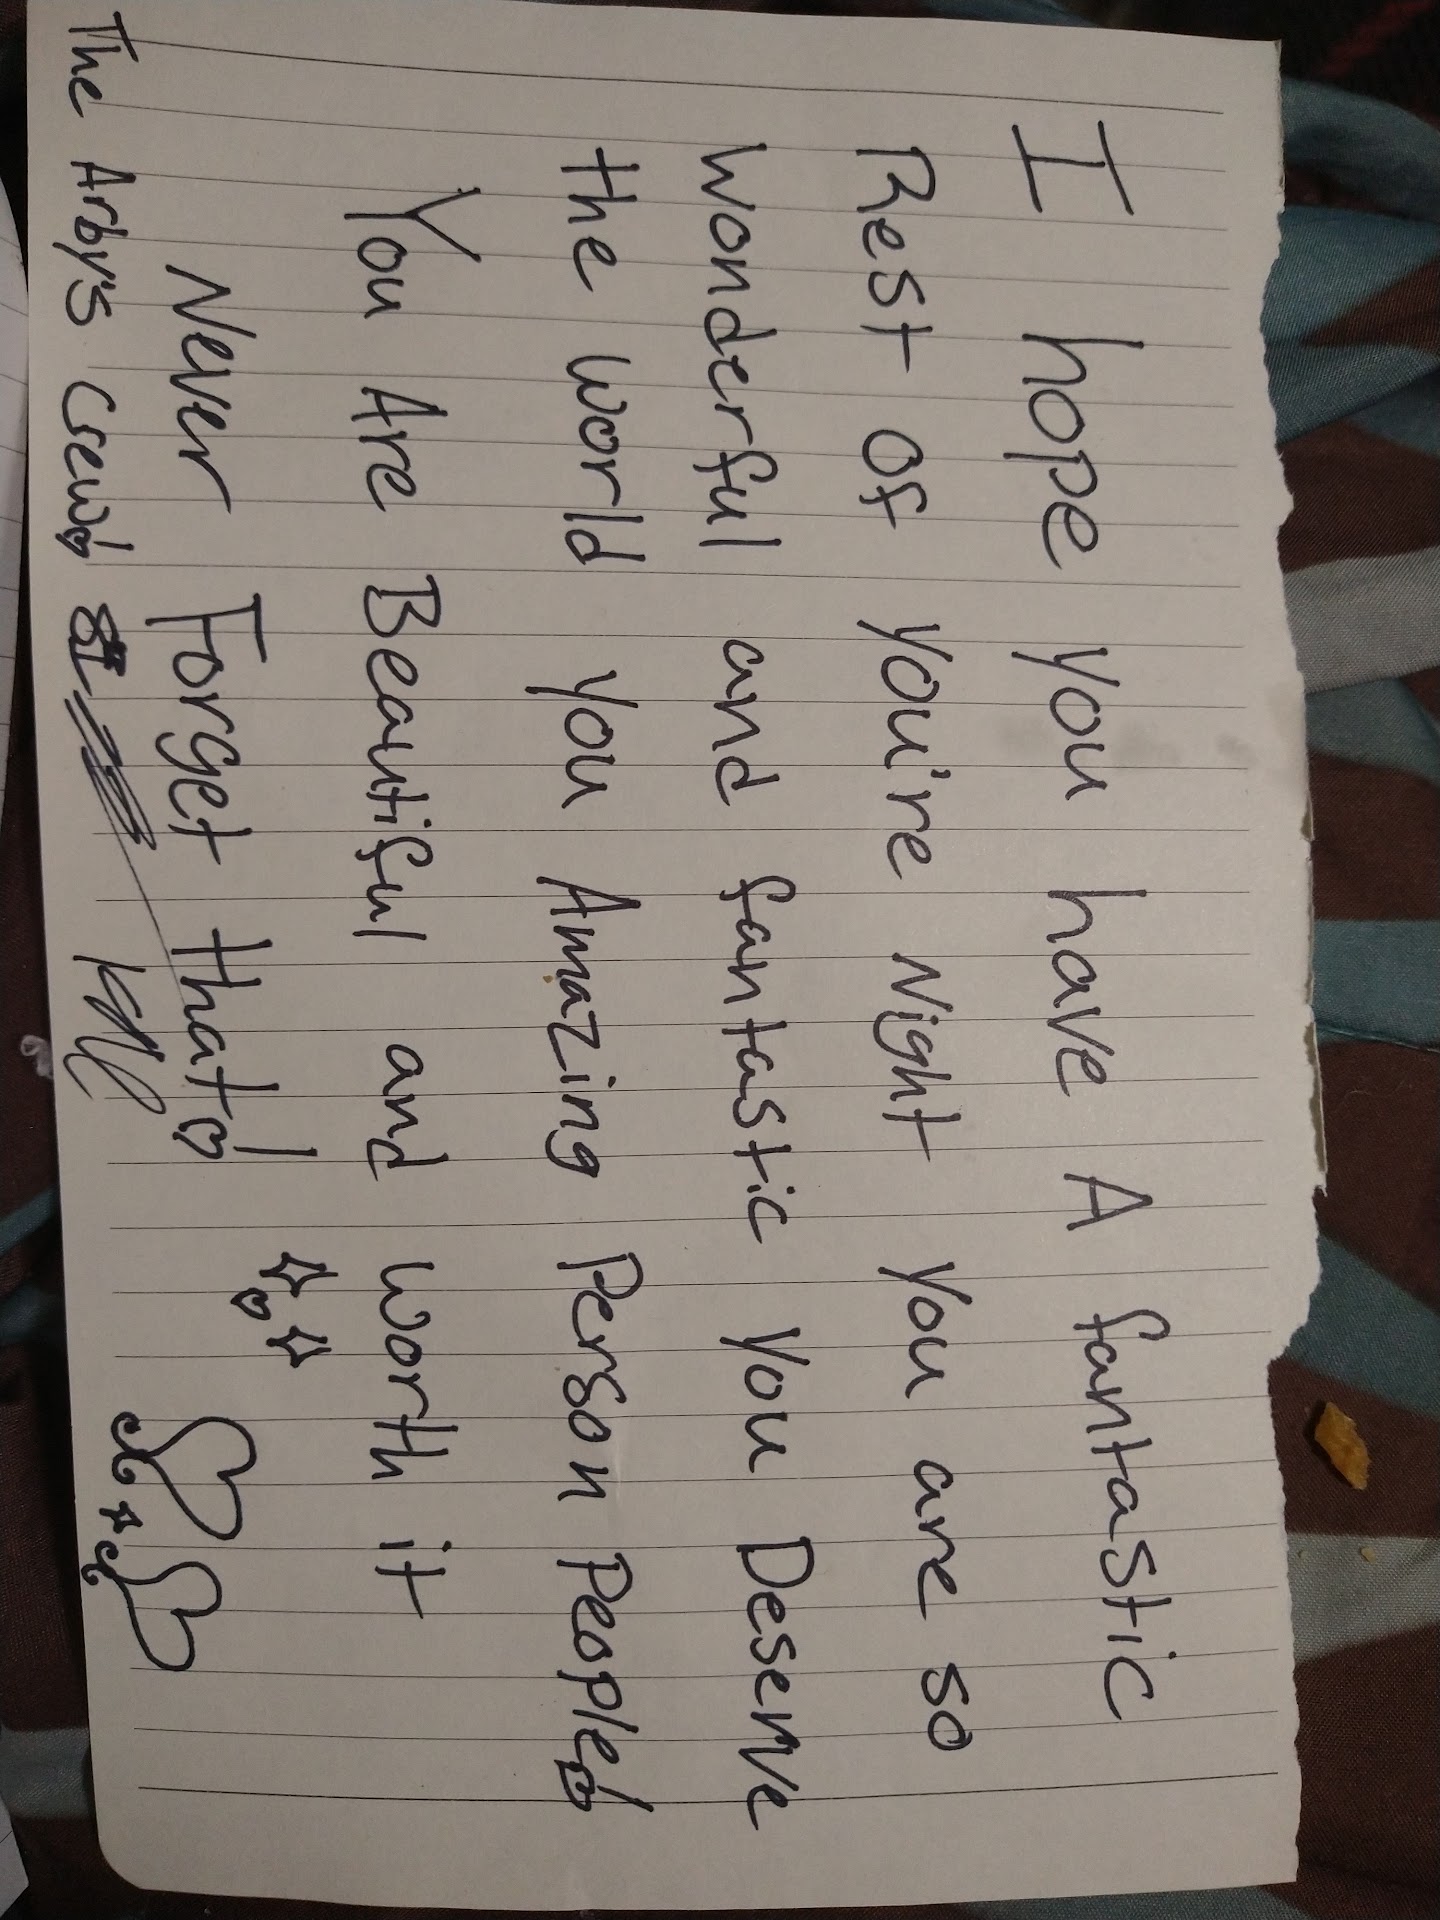 I hope you have A fantastic
Rest of you're Night you are so
wonderful and fantastic you Deserve
the world you Amazing Person People!
You Are Beautiful and worth it
Never Forget that!
The Arby's Crew!